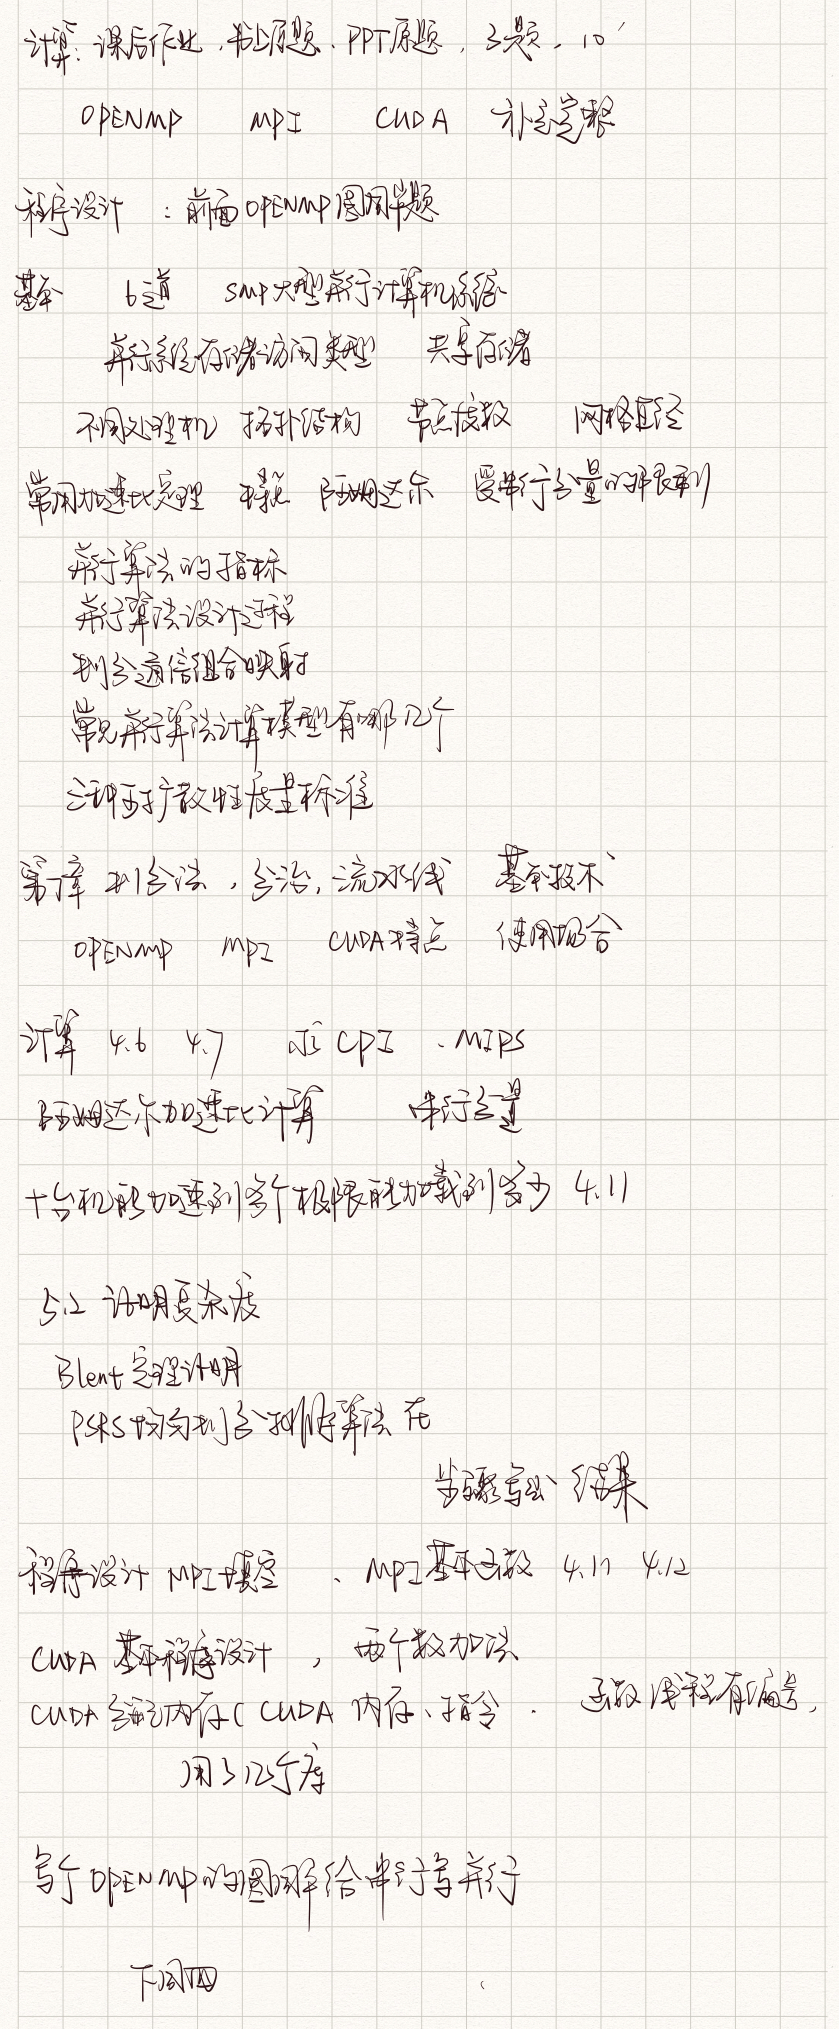 计算: 课后作业, 书上原题、PPT原题, 3题, 10'
OPENMP MPI CUDA 补充完整
程序设计 : 前面OPENMP圆周率题
基本 6道 SMP大型并行计算机系统
并行系统存储访问类型 共享存储
不同处理机 拓扑结构 节点度数 网络直径
常用加速比定理 阿姆达尔 受串行分量的限制
并行算法的指标
并行算法设计过程
划分通信组合映射
常见并行算法计算模型有哪几个
三种可扩散性度量标准
第7章 划分法, 分治, 流水线 基本技术
OPENMP MPI CUDA特点 使用场合
计算 4.6 4.7 求CPI 、MIPS
阿姆达尔加速比计算 串行分量
十台机能加速到多个极限能加载到多少 4.11
5.2 证明复杂度
Blent定理证明
PSRS均匀划分排序算法 在
步骤写出 结果
程序设计 MPI填空 、MPI基本函数 4.11 4.12
CUDA 基本程序设计 , 两个数加法
CUDA 分配内存( CUDA 内存、指令. 函数 线程有编号,
用了几个库
写个OPENMP的圆周率给串行写并行
下周四